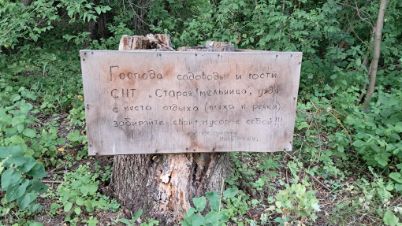 Господа садоводы и гости
СНТ „Старая мельница", уходя
с места отдыха (пляжа и речки)
забирайте свой мусор с собой!!!